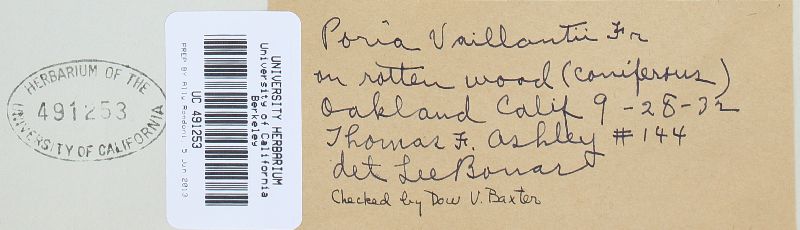 HERBARIUM OF THE
491253
UNIVERSITY OF CALIFORNIA
UNIVERSITY HERBARIUM
University of California
Berkeley
UC 491253
5 Jun 2013
Poria Vaillantii Fr
on rotten wood (coniferous)
Oakland Calif 9-28-32
Thomas F. Ashley #144
det Lee Bonar
Checked by Dow V. Baxter